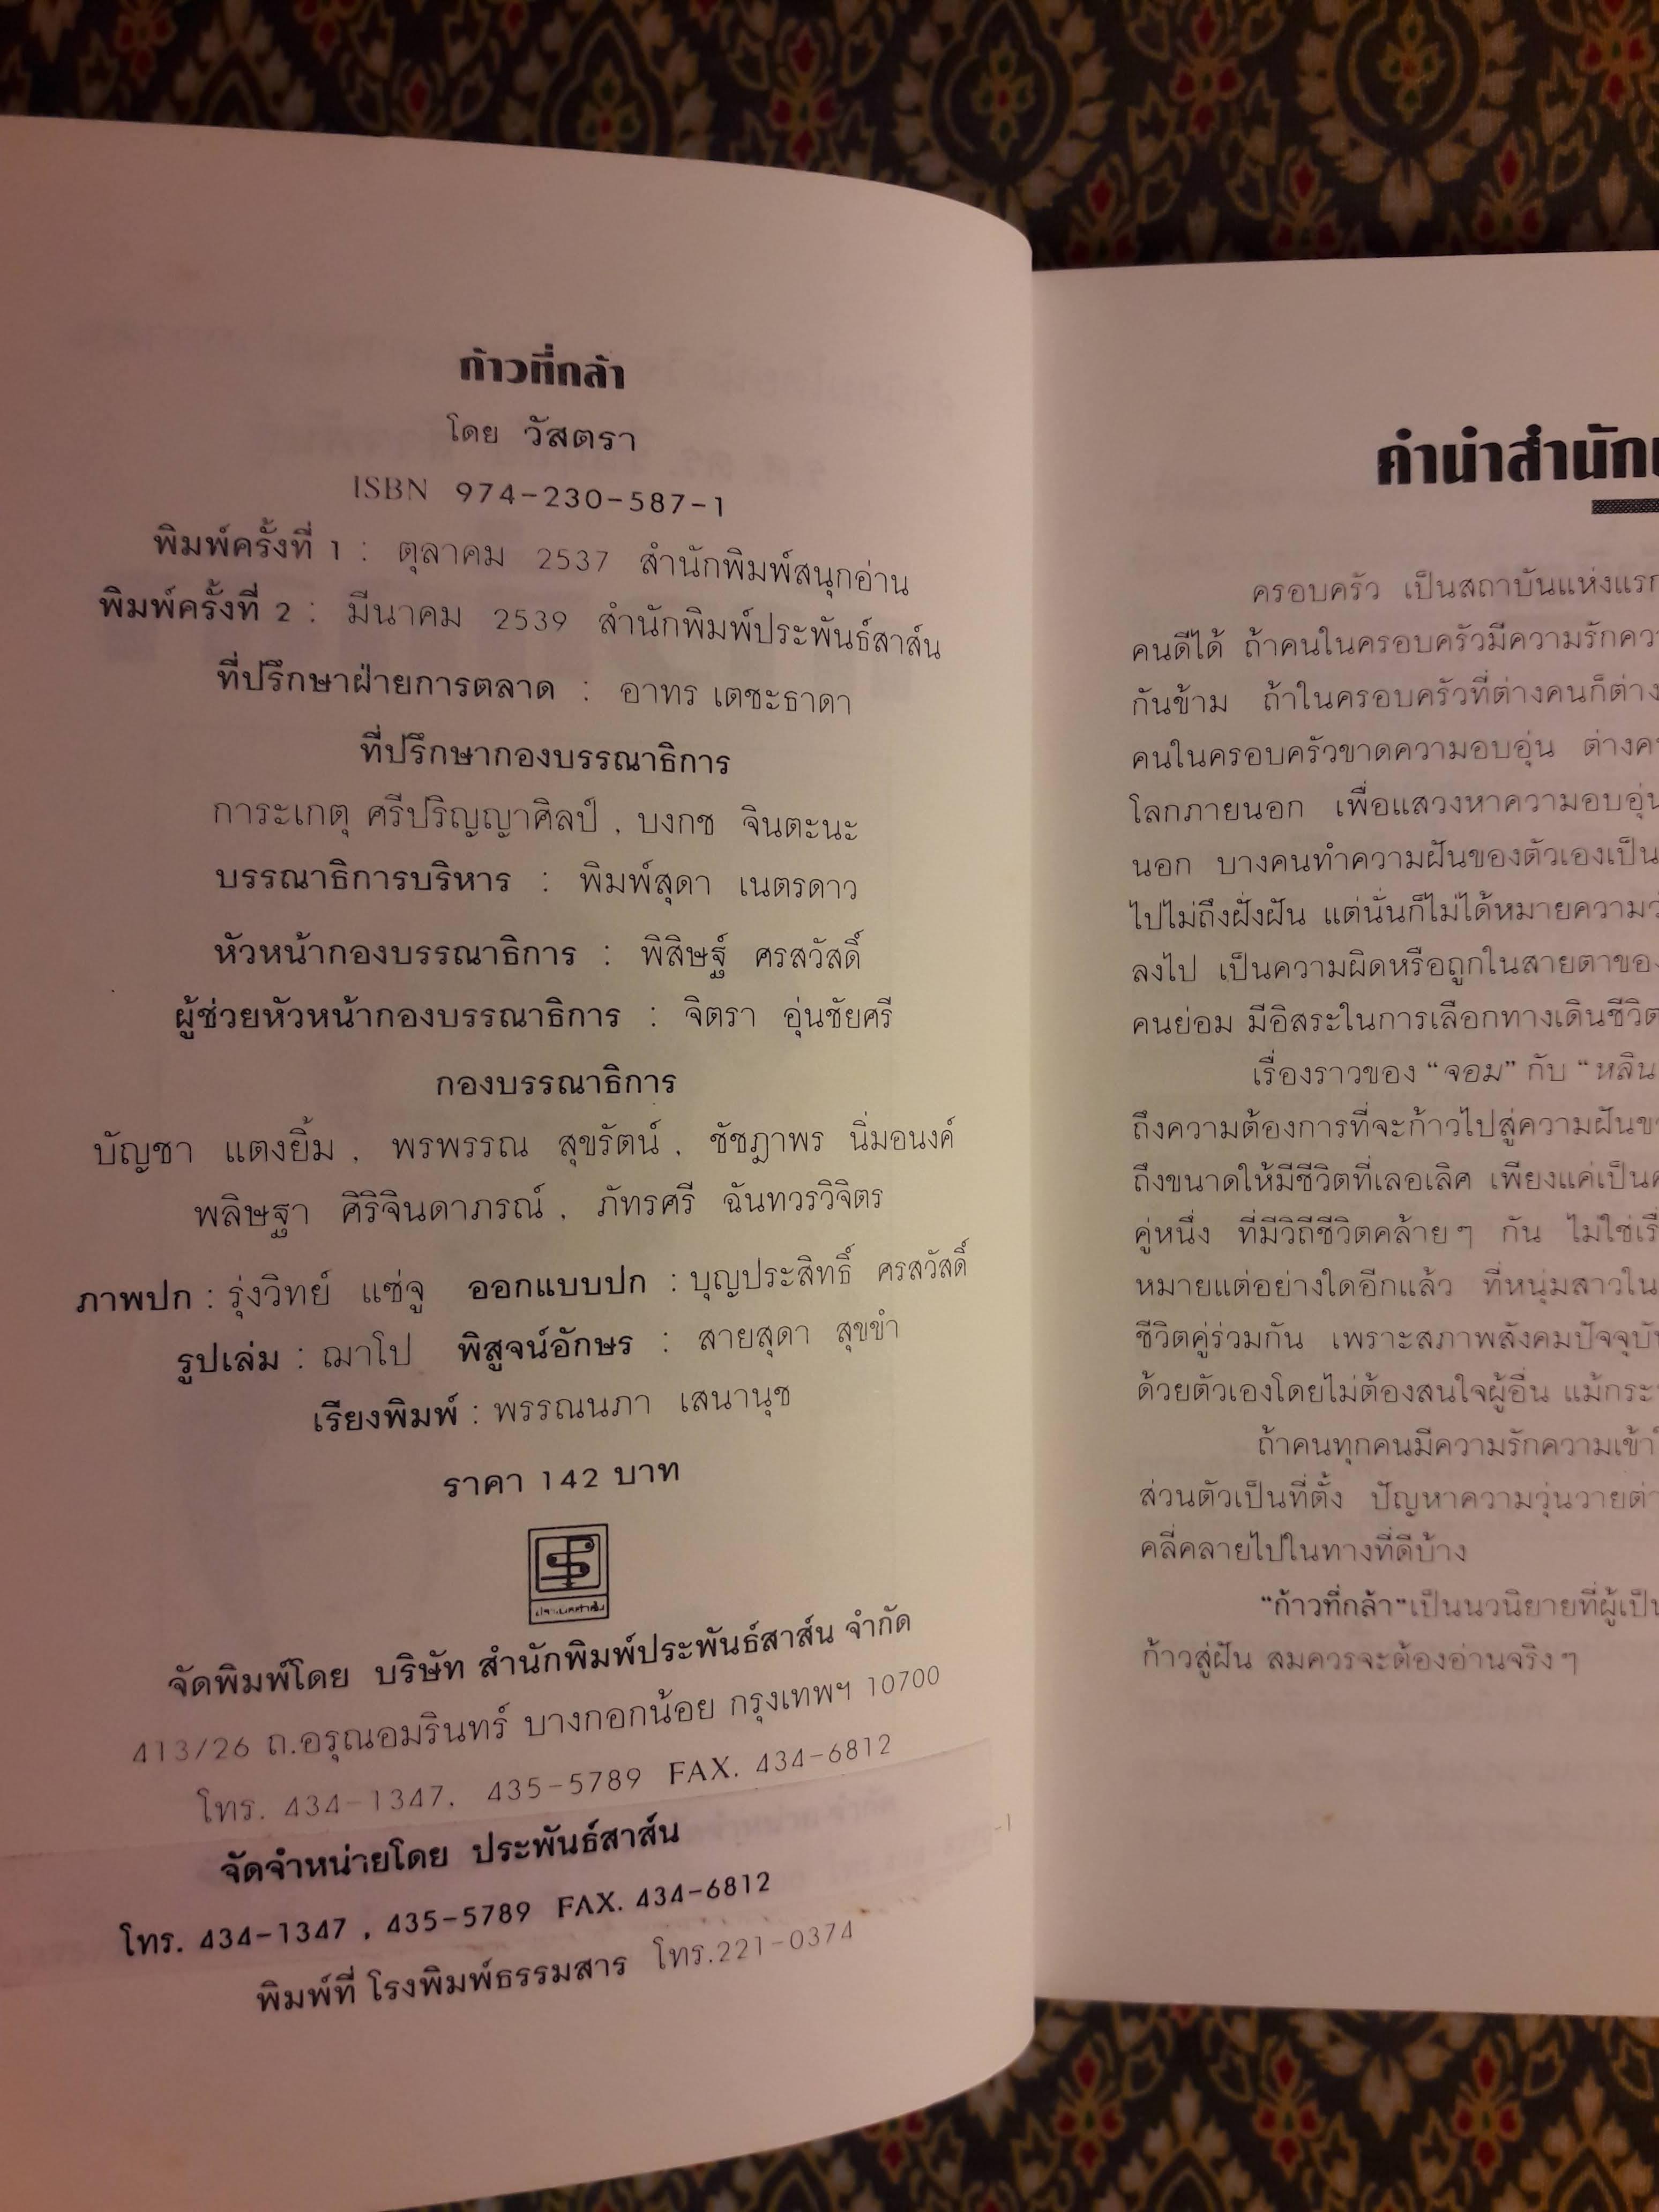 ก้าวที่กล้า
โดย วัสตรา
ISBN 974-230-587-1
พิมพ์ครั้งที่ 1 : ตุลาคม 2537 สำนักพิมพ์สนุกอ่าน
พิมพ์ครั้งที่ 2 : มีนาคม 2539 สำนักพิมพ์ประพันธ์สาส์น
ที่ปรึกษาฝ่ายการตลาด : อาทร เตชะธาดา
ที่ปรึกษากองบรรณาธิการ
การะเกตุ ศรีปริญญาศิลป์ , บงกช จินตะนะ
บรรณาธิการบริหาร : พิมพ์สุดา เนตรดาว
หัวหน้ากองบรรณาธิการ : พิสิษฐ์ ศรสวัสดิ์
ผู้ช่วยหัวหน้ากองบรรณาธิการ : จิตรา อุ่นชัยศรี
กองบรรณาธิการ
บัญชา แตงยิ้ม , พรพรรณ สุขรัตน์ , ชัชฎาพร นิ่มอนงค์
พลิษฐา ศิริจินดาภรณ์ , ภัทรศรี ฉันทวรวิจิตร
ภาพปก : รุ่งวิทย์ แซ่จู ออกแบบปก : บุญประสิทธิ์ ศรสวัสดิ์
รูปเล่ม : ฌาโป พิสูจน์อักษร : สายสุดา สุขขำ
เรียงพิมพ์ : พรรณนภา เสนานุช
ราคา 142 บาท
จัดพิมพ์โดย บริษัท สำนักพิมพ์ประพันธ์สาส์น จำกัด
413/26 ถ.อรุณอมรินทร์ บางกอกน้อย กรุงเทพฯ 10700
โทร. 434-1347, 435-5789 FAX. 434-6812
จัดจำหน่ายโดย ประพันธ์สาส์น
โทร. 434-1347 , 435-5789 FAX. 434-6812
พิมพ์ที่ โรงพิมพ์ธรรมสาร โทร.221-0374
คำนำสำนัก
ครอบครัว เป็นสถาบันแห่งแรก
คนดีได้ ถ้าคนในครอบครัวมีความรัก
กันข้าม ถ้าในครอบครัวที่ต่างคนก็ต่าง
คนในครอบครัวขาดความอบอุ่น
โลกภายนอก เพื่อแสวงหาความอบอุ่น
นอก บางคนทำความฝันของตัวเองเป็น
ไปไม่ถึงฝั่งฝัน แต่นั่นก็ไม่ได้หมายความ
ลงไป เป็นความผิดหรือถูกในสายตาของ
คนย่อม มีอิสระในการเลือกทางเดินชีวิต
เรื่องราวของ "จอม" กับ "หลิน
ถึงความต้องการที่จะก้าวไปสู่ความฝัน
ถึงขนาดให้มีชีวิตที่เลอเลิศ เพียงแค่เป็น
คู่หนึ่ง ที่มีวิถีชีวิตคล้ายๆ กัน ไม่ใช่
หมายแต่อย่างใดอีกแล้ว ที่หนุ่มสาวใน
ชีวิตคู่ร่วมกัน เพราะสภาพสังคมปัจจุบัน
ด้วยตัวเองโดยไม่ต้องสนใจผู้อื่น แม้
ถ้าคนทุกคนมีความรักความ
ส่วนตัวเป็นที่ตั้ง ปัญหาความวุ่นวาย
คลี่คลายไปในทางที่ดีบ้าง
"ก้าวที่กล้า"เป็นนวนิยายที่ผู้
ก้าวสู่ฝัน สมควรจะต้องอ่านจริงๆ